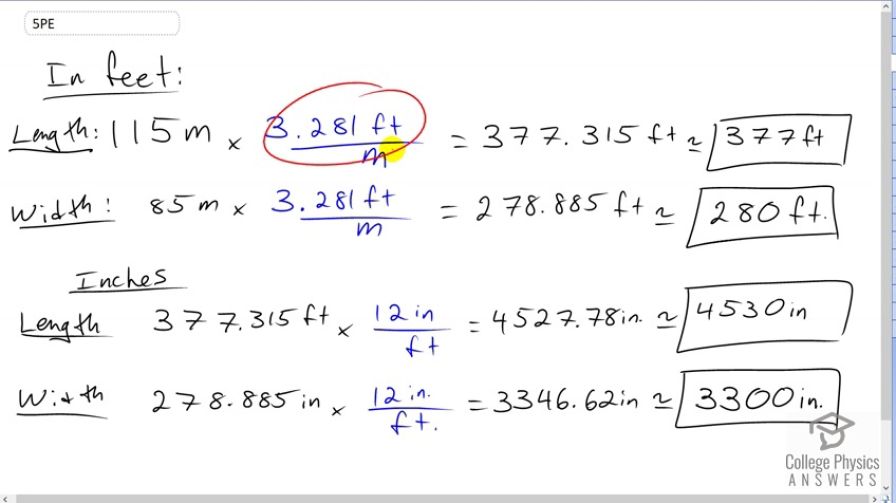 5PE
In feet:
Length: 115 m × 3.281 ft / m = 377.315 ft ≃ 377 ft
Width: 85 m × 3.281 ft / m = 278.885 ft ≃ 280 ft.
Inches
Length 377.315 ft × 12 in / ft = 4527.78 in. ≃ 4530 in
Width 278.885 in × 12 in. / ft. = 3346.62 in ≃ 3300 in.
College Physics
ANSWERS